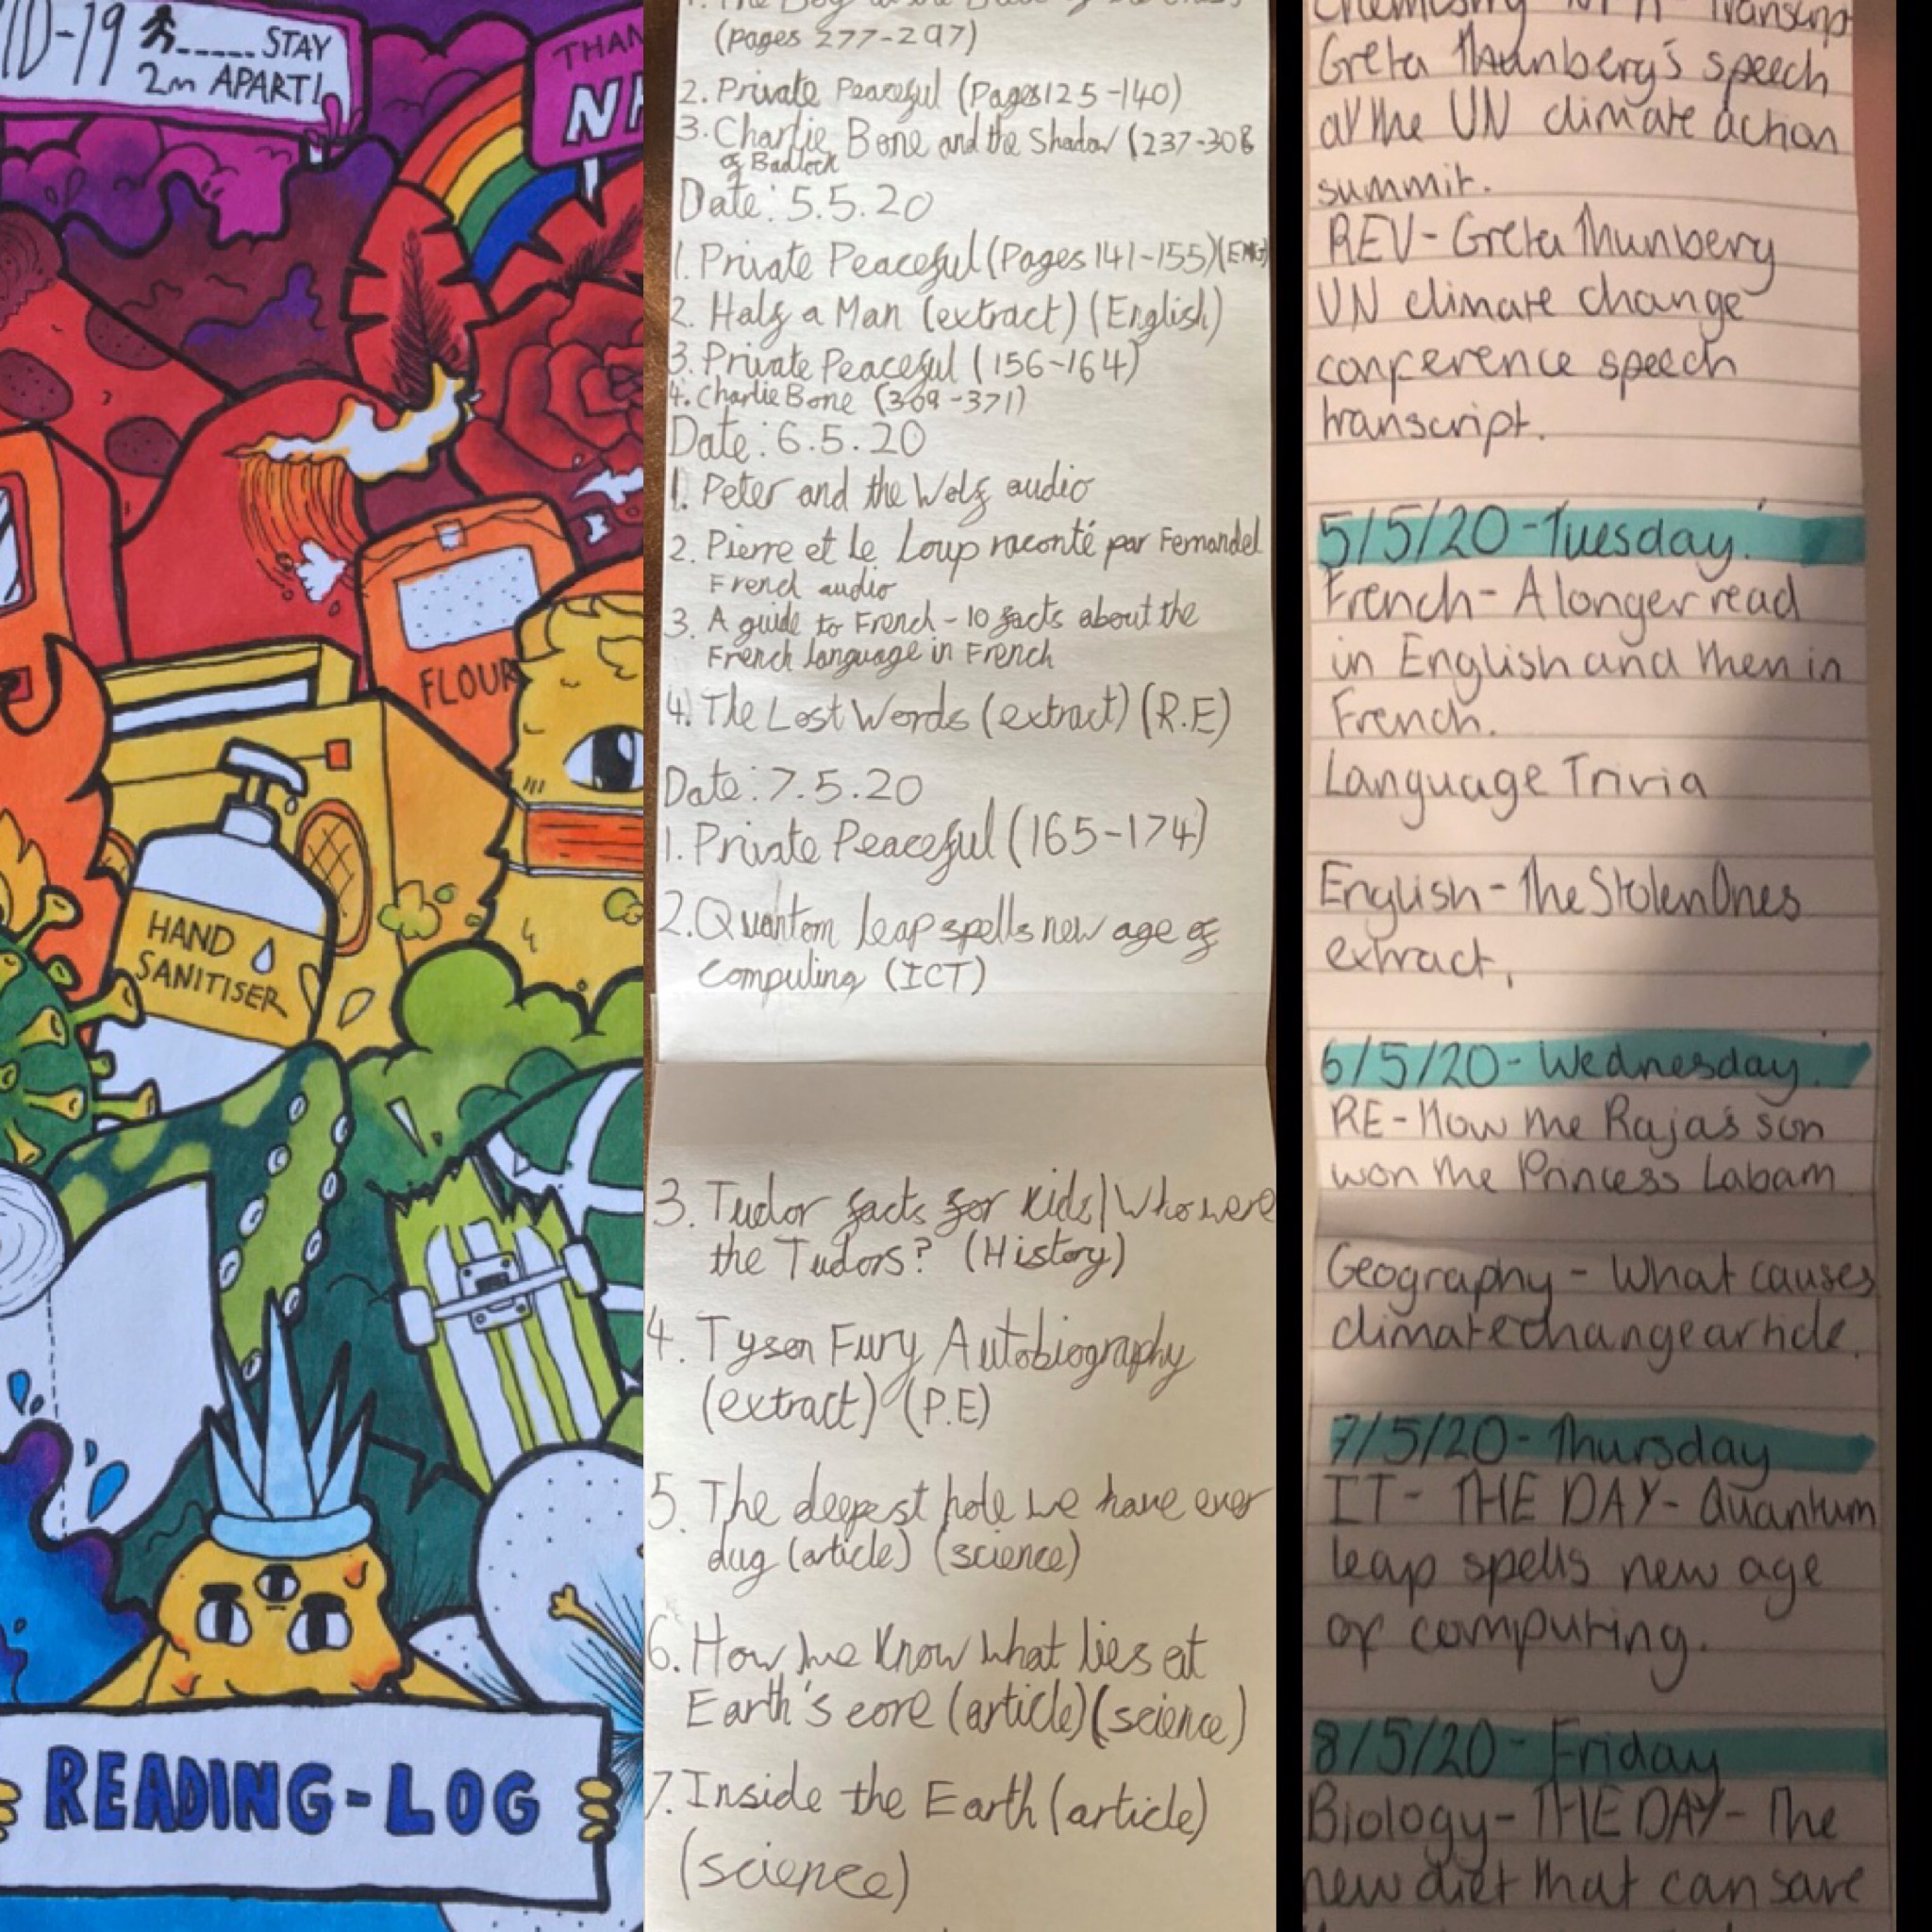 ID-19 STAY
2m APART!
THAN
NH
FLOUR
HAND
SANITISER
READING-LOG
(pages 277-297)
2. Private Peaceful (Pages 125-140)
3. Charlie Bone and the Shadow (237-308
of Badlock
Date: 5.5.20
1. Private Peaceful (Pages 141-155) (ENG)
2. Half a Man (extract) (English)
3. Private Peaceful (156-164)
4. Charlie Bone (309-371)
Date: 6.5.20
1. Peter and the Wolf audio
2. Pierre et Le Loup raconté par Fernandel
French audio
3. A guide to French - 10 facts about the
French language in French
4. The Lost Words (extract) (R.E)
Date: 7.5.20
1. Private Peaceful (165-174)
2. Quantom leap spells new age of
computing (ICT)
3. Tudor facts for kids | Who were
the Tudors? (History)
4. Tyson Fury Autobiography
(extract) (P.E)
5. The deepest hole we have ever
dug (article) (science)
6. How we know what lies at
Earth's core (article) (science)
7. Inside the Earth (article)
(science)
Greta Thunberg's speech
at the UN climate action
summit.
REV- Greta Thunberg
UN climate change
conference speech
transcript.
5/5/20 - Tuesday.
French - A longer read
in English and then in
French.
Language Trivia
English - The Stolen Ones
extract.
6/5/20 - Wednesday.
RE - How the Raja's son
won the Princess Labam
Geography - What causes
climate change article.
7/5/20 - Thursday
IT - THE DAY - Quantum
leap spells new age
of computing.
8/5/20 - Friday
Biology - THE DAY - The
new diet that can save